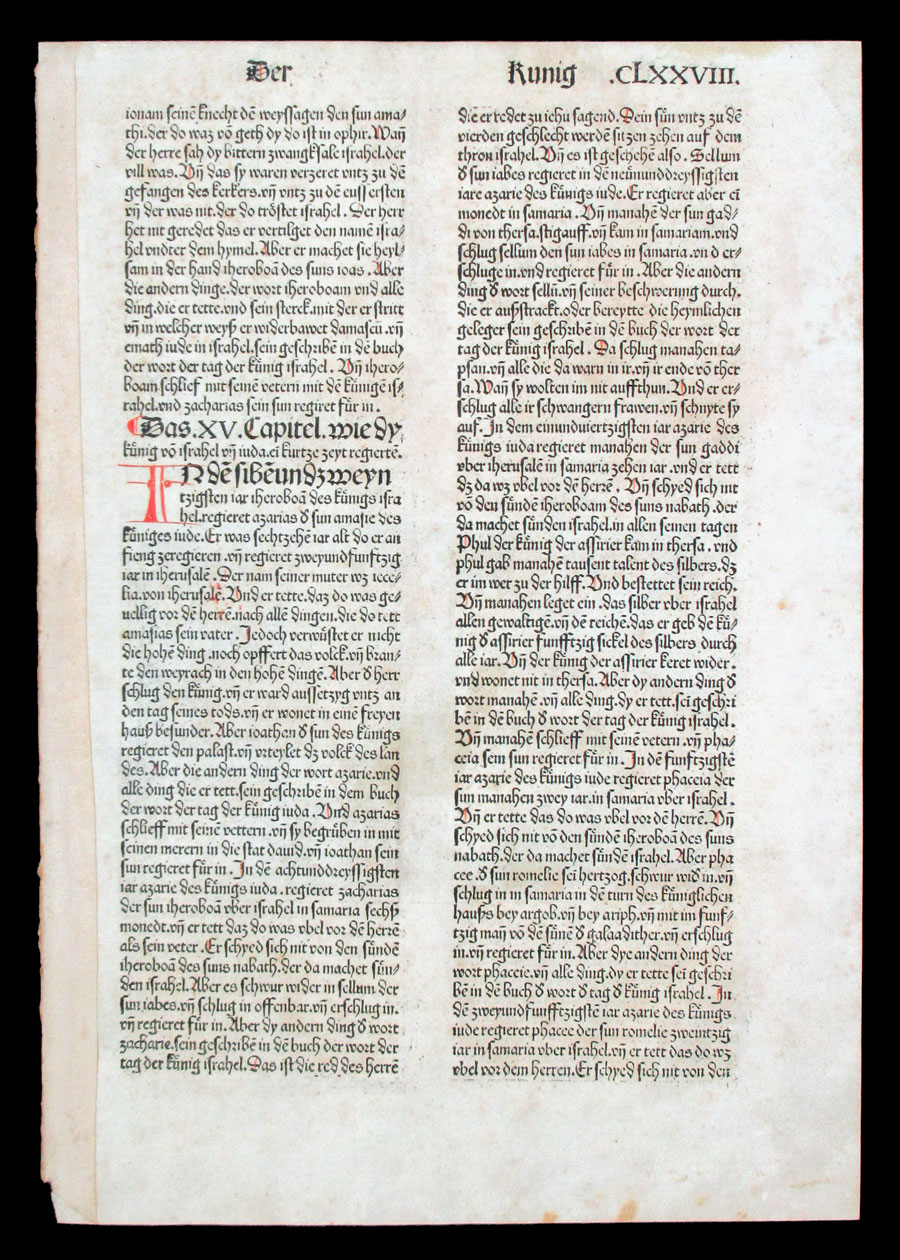 Der
Kunig .CLXXVIII.
ionam seinē knecht dē weyssagen den sun ama/
thi.der do waz vō geth dy do ist in ophir.Wañ
der herre sah dy bittern zwangksale israhel.der
vill was.Vñ das sy waren verzeret vntz zu dē
gefangen des kerkers.vñ vntz zu dē eussersten
vñ der was nit.der do tröstet israhel. Der herr
het nit geredet das er vertilget den namē isra/
hel vndter dem hymel. Aber er machet sie heyl/
sam in der hand iheroboā des suns ioas. Aber
die andern dinge.der wort iheroboam vnd alle
ding.die er tette.vnd sein sterck.mit der er stritt
vñ in welcher weyß er widerbawet damascū.vñ
emath iude in israhel.sein geschribē in dē buch
der wort der tag der künig israhel. Vñ ihero/
boam schlief mit seinē vetern mit dē künigē is/
rahel.vnd zacharias sein sun regiret für in.
Das.XV.Capitel.wie dy
künig vō israhel vñ iuda.ei kurtze zeyt regiertē.
IN dē sibēundzweyn
tzigsten iar iheroboā des künigs isra
hel.regieret azarias d̕ sun amasie des
küniges iude.Er was sechtzehē iar alt do er an
fieng zeregieren.vñ regieret zweyundfunftzig
iar in iherusalē. Der nam seiner muter wz iece/
lia.von iherusalē.Vnd er tette.daz do was ge/
uellig vor dē herrē.nach allē dingen.die do tett
amasias sein vater. Jedoch verwüstet er nicht
die hohē ding.noch opffert das volck.vñ bran/
te den weyrach in den hohē dingē.Aber d̕ herr
schlug den künig.vñ er ward aussetzyg vntz an
den tag seines tods.vñ er wonet in einē freyen
hauß besunder. Aber ioathan d̕ sun des künigs
regieret den palast.vñ vrteylet dz volck des lan
des.Aber die andern ding der wort azarie.vnd
alle ding die er tett.sein geschribē in dem buch
der wort der tag der künig iuda. Vnd azarias
schlieff mit seinē vettern.vñ sy begrůben in mit
seinen merern in die stat dauid.vñ ioathan sein
sun regieret für in. In dē achtunddreyssigsten
iar azarie des künigs iuda. regieret zacharias
der sun iheroboā vber israhel in samaria sechß
monedt.vñ er tett daz do was vbel vor dē herrē
als sein veter. Er schyed sich nit von den sündē
iheroboā des suns nabath.der da machet sün/
den israhel.Aber es schwur wider in sellum der
sun iabes.vñ schlug in offenbar.vñ erschlug in.
vñ regieret für in.Aber dy andern ding d̕ wort
zacharie.sein geschribē in dē buch der wort der
tag der künig israhel. Das ist die red des herrē
die er redet zu iehu sagend.Dein sün vntz zu dē
vierden geschlecht werdē sitzen zehen auf dem
thron israhel.Vñ es ist geschehē also. Sellum
d̕ sun iabes regieret in dē neünunddreyssigsten
iare azarie des künigs iude.Er regieret aber ei
monedt in samaria. Vñ manahē der sun gad/
di von thersa.stig auff.vñ kam in samariam.vnd
schlug sellum den sun iabes in samaria.vnd er/
schluge in.vnd regieret für in. Aber die andern
ding d̕ wort sellū.vñ seiner beschwerung durch.
die er außstrackt.oder bereytte die heymlichen
geleger sein geschribē in dē buch der wort der
tag der künig israhel. Da schlug manahen ta/
psan.vñ alle die da warn in ir.vñ ir ende vō ther
sa.Wañ sy wolten im nit auffthun.Vnd er er/
schlug alle ir schwangern frawen.vñ schnyte sy
auf.In dem einundviertzigsten iar azarie des
künigs iuda regieret manahen der sun gaddi
vber iherusalē in samaria zehen iar.vnd er tett
dz da wz vbel vor dē herrē. Vñ schyed sich nit
vō den sündē iheroboam des suns nabath.der
da machet sünden israhel.in allen seinen tagen
Phul der künig der assirier kam in thersa.vnd
phul gab manahē tausent talent des silbers.dz
er im wer zu der hilff.Vnd bestettet sein reich.
Vñ manahen leget ein.das silber vber israhel
allen gewaltigē.vñ dē reichē.das er geb dē kü/
nig d̕ assirier funfftzig sickel des silbers durch
alle iar. Vñ der künig der assirier keret wider.
vnd wonet nit in thersa.Aber dy andern ding d̕
wort manahē.vñ alle ding.dy er tett.sei geschri
bē in dē buch d̕ wort der tag der künig israhel.
Vñ manahē schlieff mit seinē vetern.vñ pha/
ceia sein sun regieret für in. In dē funftzigstē
iar azarie des künigs iude regieret phaceia der
sun manahen zwey iar.in samaria vber israhel.
Vñ er tette das do was vbel vor dē herrē. Vñ
schyed sich nit vō den sündē iheroboā des suns
nabath.der da machet sündē israhel.Aber pha
cee.d̕ sun romelie sei hertzog.schwur wid̕ in.vñ
schlug in in samaria in dē turn des küniglichen
haußs bey argob.vñ bey ariph.vñ mit im funf/
tzig mañ vō dē sünē d̕ galaadither.vñ erschlug
in.vñ regieret für in. Aber dye andern ding der
wort phaceie.vñ alle ding.dy er tette sei geschri
bē in dē buch d̕ wort d̕ tag d̕ künig israhel. In
dē zweyundfunfftzigstē iar azarie des künigs
iude regieret phacee der sun romelie zweintzig
iar in samaria vber israhel.vñ er tett das do wz
vbel vor dem herren.Er schyed sich nit von den